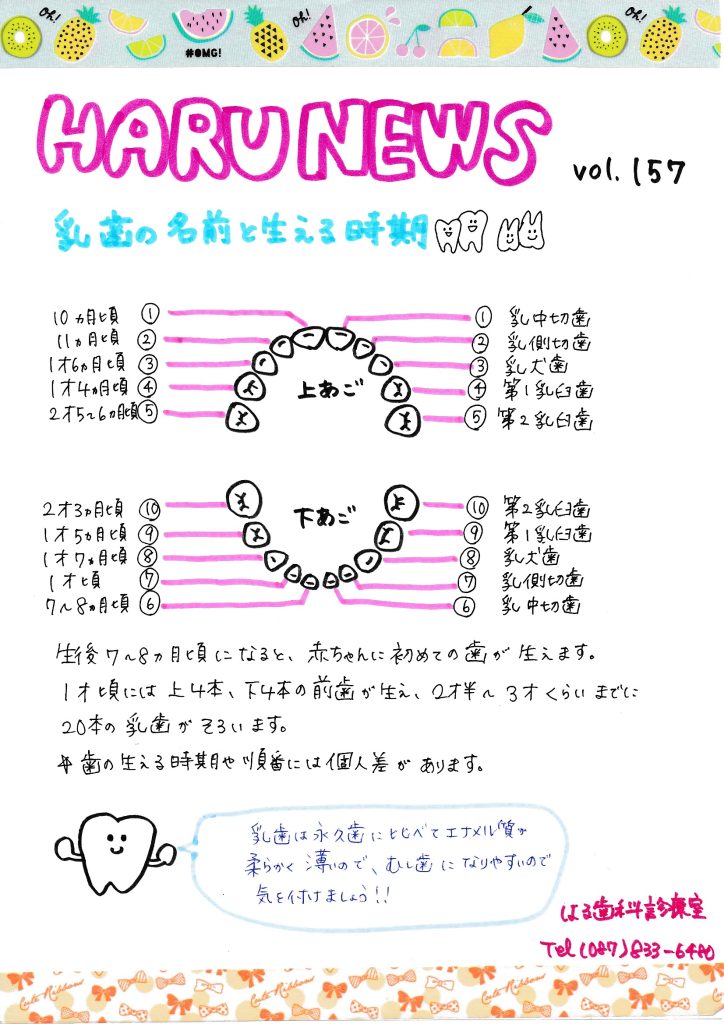 Oh!
#OMG!
Oh!
HARU NEWS vol.157
乳歯の名前と生える時期
10ヵ月頃 ① ① 乳中切歯
11ヵ月頃 ② ② 乳側切歯
1才6ヵ月頃 ③ ③ 乳犬歯
1才4ヵ月頃 ④ 上あご ④ 第1乳臼歯
2才5~6ヵ月頃 ⑤ ⑤ 第2乳臼歯
2才3ヵ月頃 ⑩ 下あご ⑩ 第2乳臼歯
1才5ヵ月頃 ⑨ ⑨ 第1乳臼歯
1才7ヵ月頃 ⑧ ⑧ 乳犬歯
1才頃 ⑦ ⑦ 乳側切歯
7~8ヵ月頃 ⑥ ⑥ 乳中切歯
生後7~8ヵ月頃になると、赤ちゃんに初めての歯が生えます。
1才頃には上4本、下4本の前歯が生え、2才半~3才くらいまでに
20本の乳歯がそろいます。
*歯の生える時期や順番には個人差があります。
乳歯は永久歯に比べてエナメル質が
柔らかく薄いので、むし歯になりやすいので
気を付けましょう!!
はる歯科診療室
Tel (087) 833-6480
Cute Ribbons